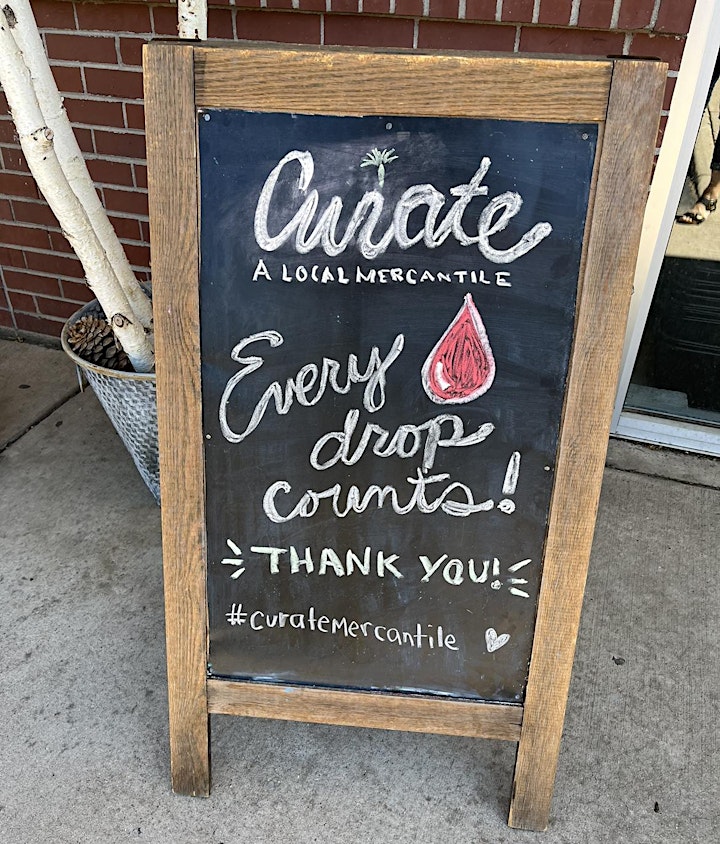 Curate
A LOCAL MERCANTILE
Every
drop
counts!
THANK YOU!
#curatemercantile